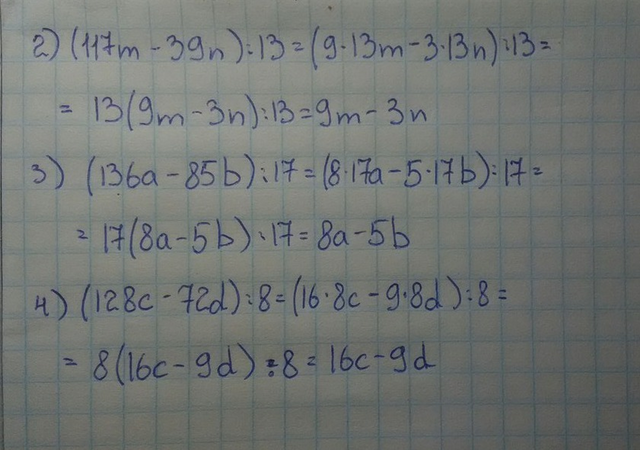 2) (117m - 39n) : 13 = (9·13m - 3·13n) : 13 =
= 13(9m - 3n) : 13 = 9m - 3n
3) (136a - 85b) : 17 = (8·17a - 5·17b) : 17 =
= 17(8a - 5b) : 17 = 8a - 5b
4) (128c - 72d) : 8 = (16·8c - 9·8d) : 8 =
= 8(16c - 9d) : 8 = 16c - 9d